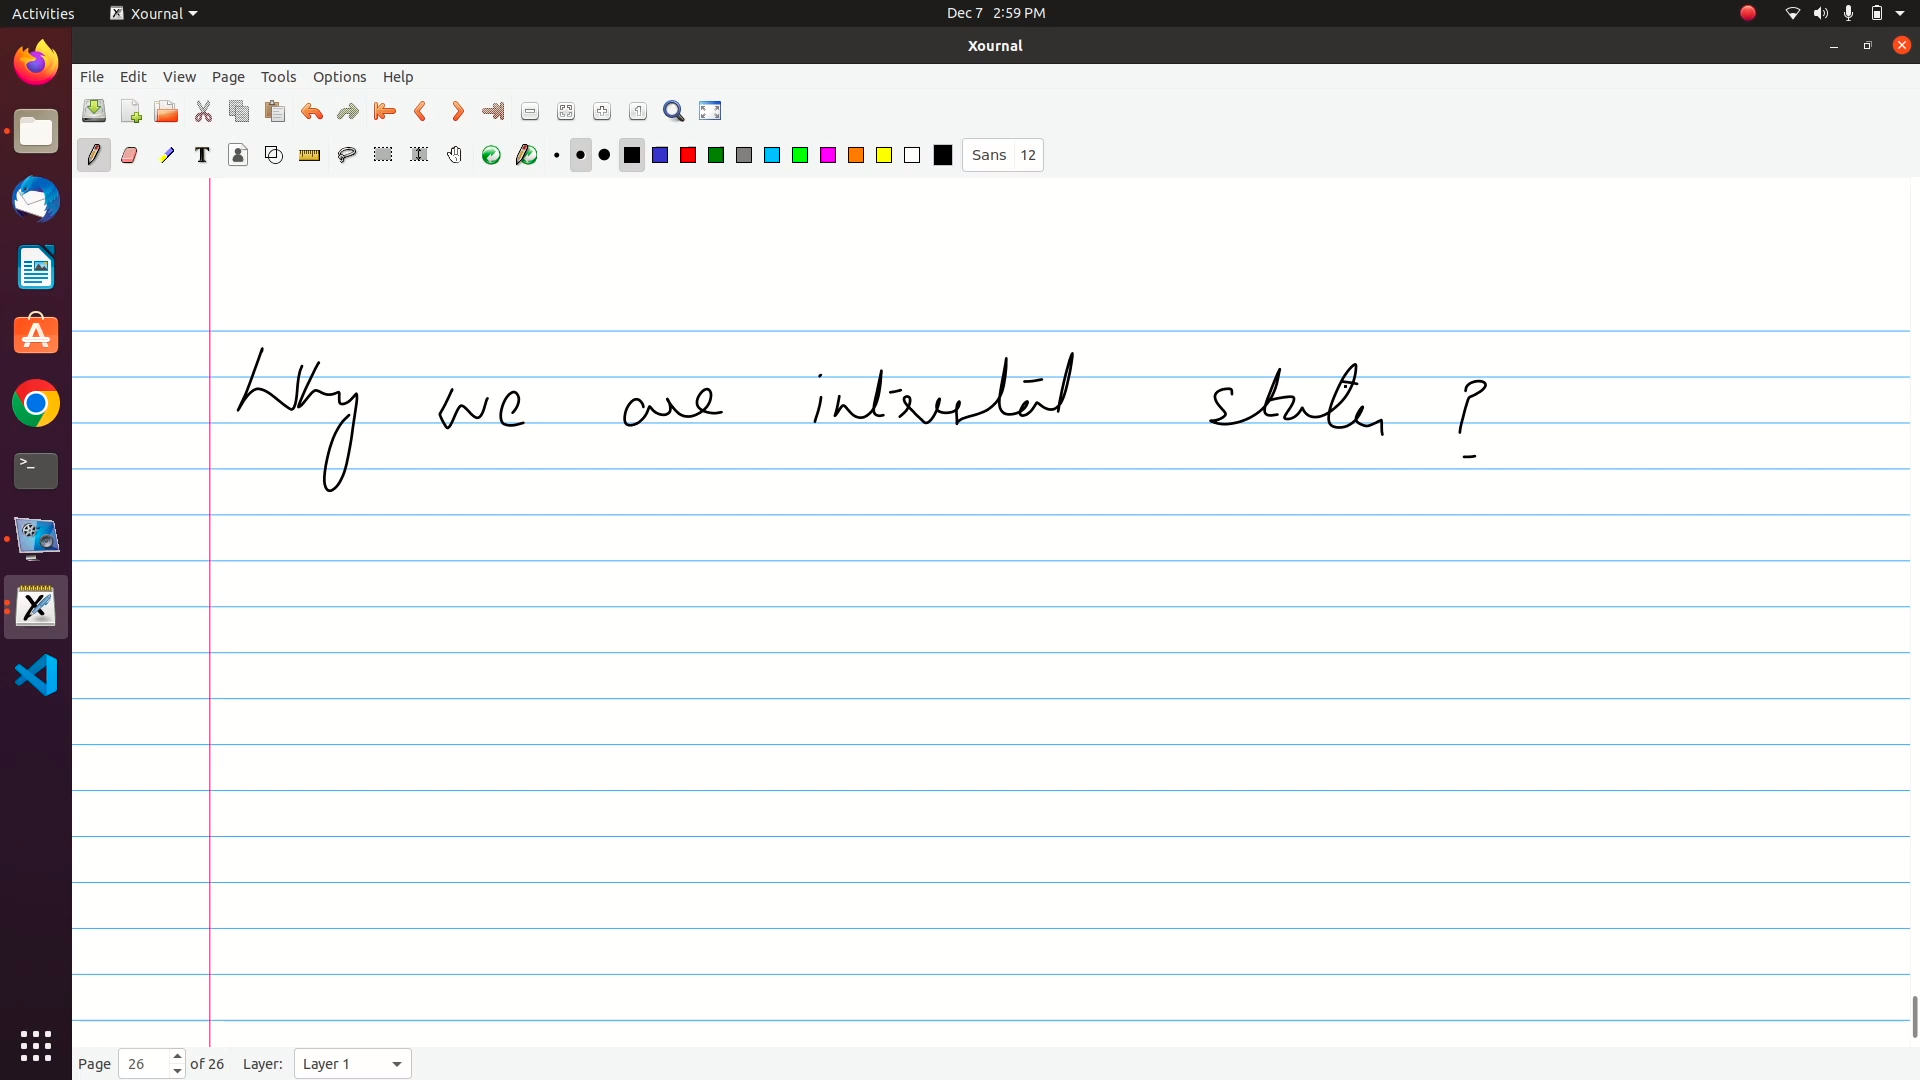 Activities Xournal Dec 7 2:59 PM
Xournal
File Edit View Page Tools Options Help
T Sans 12
Why we are intrested states ?
Page 26 of 26 Layer: Layer 1